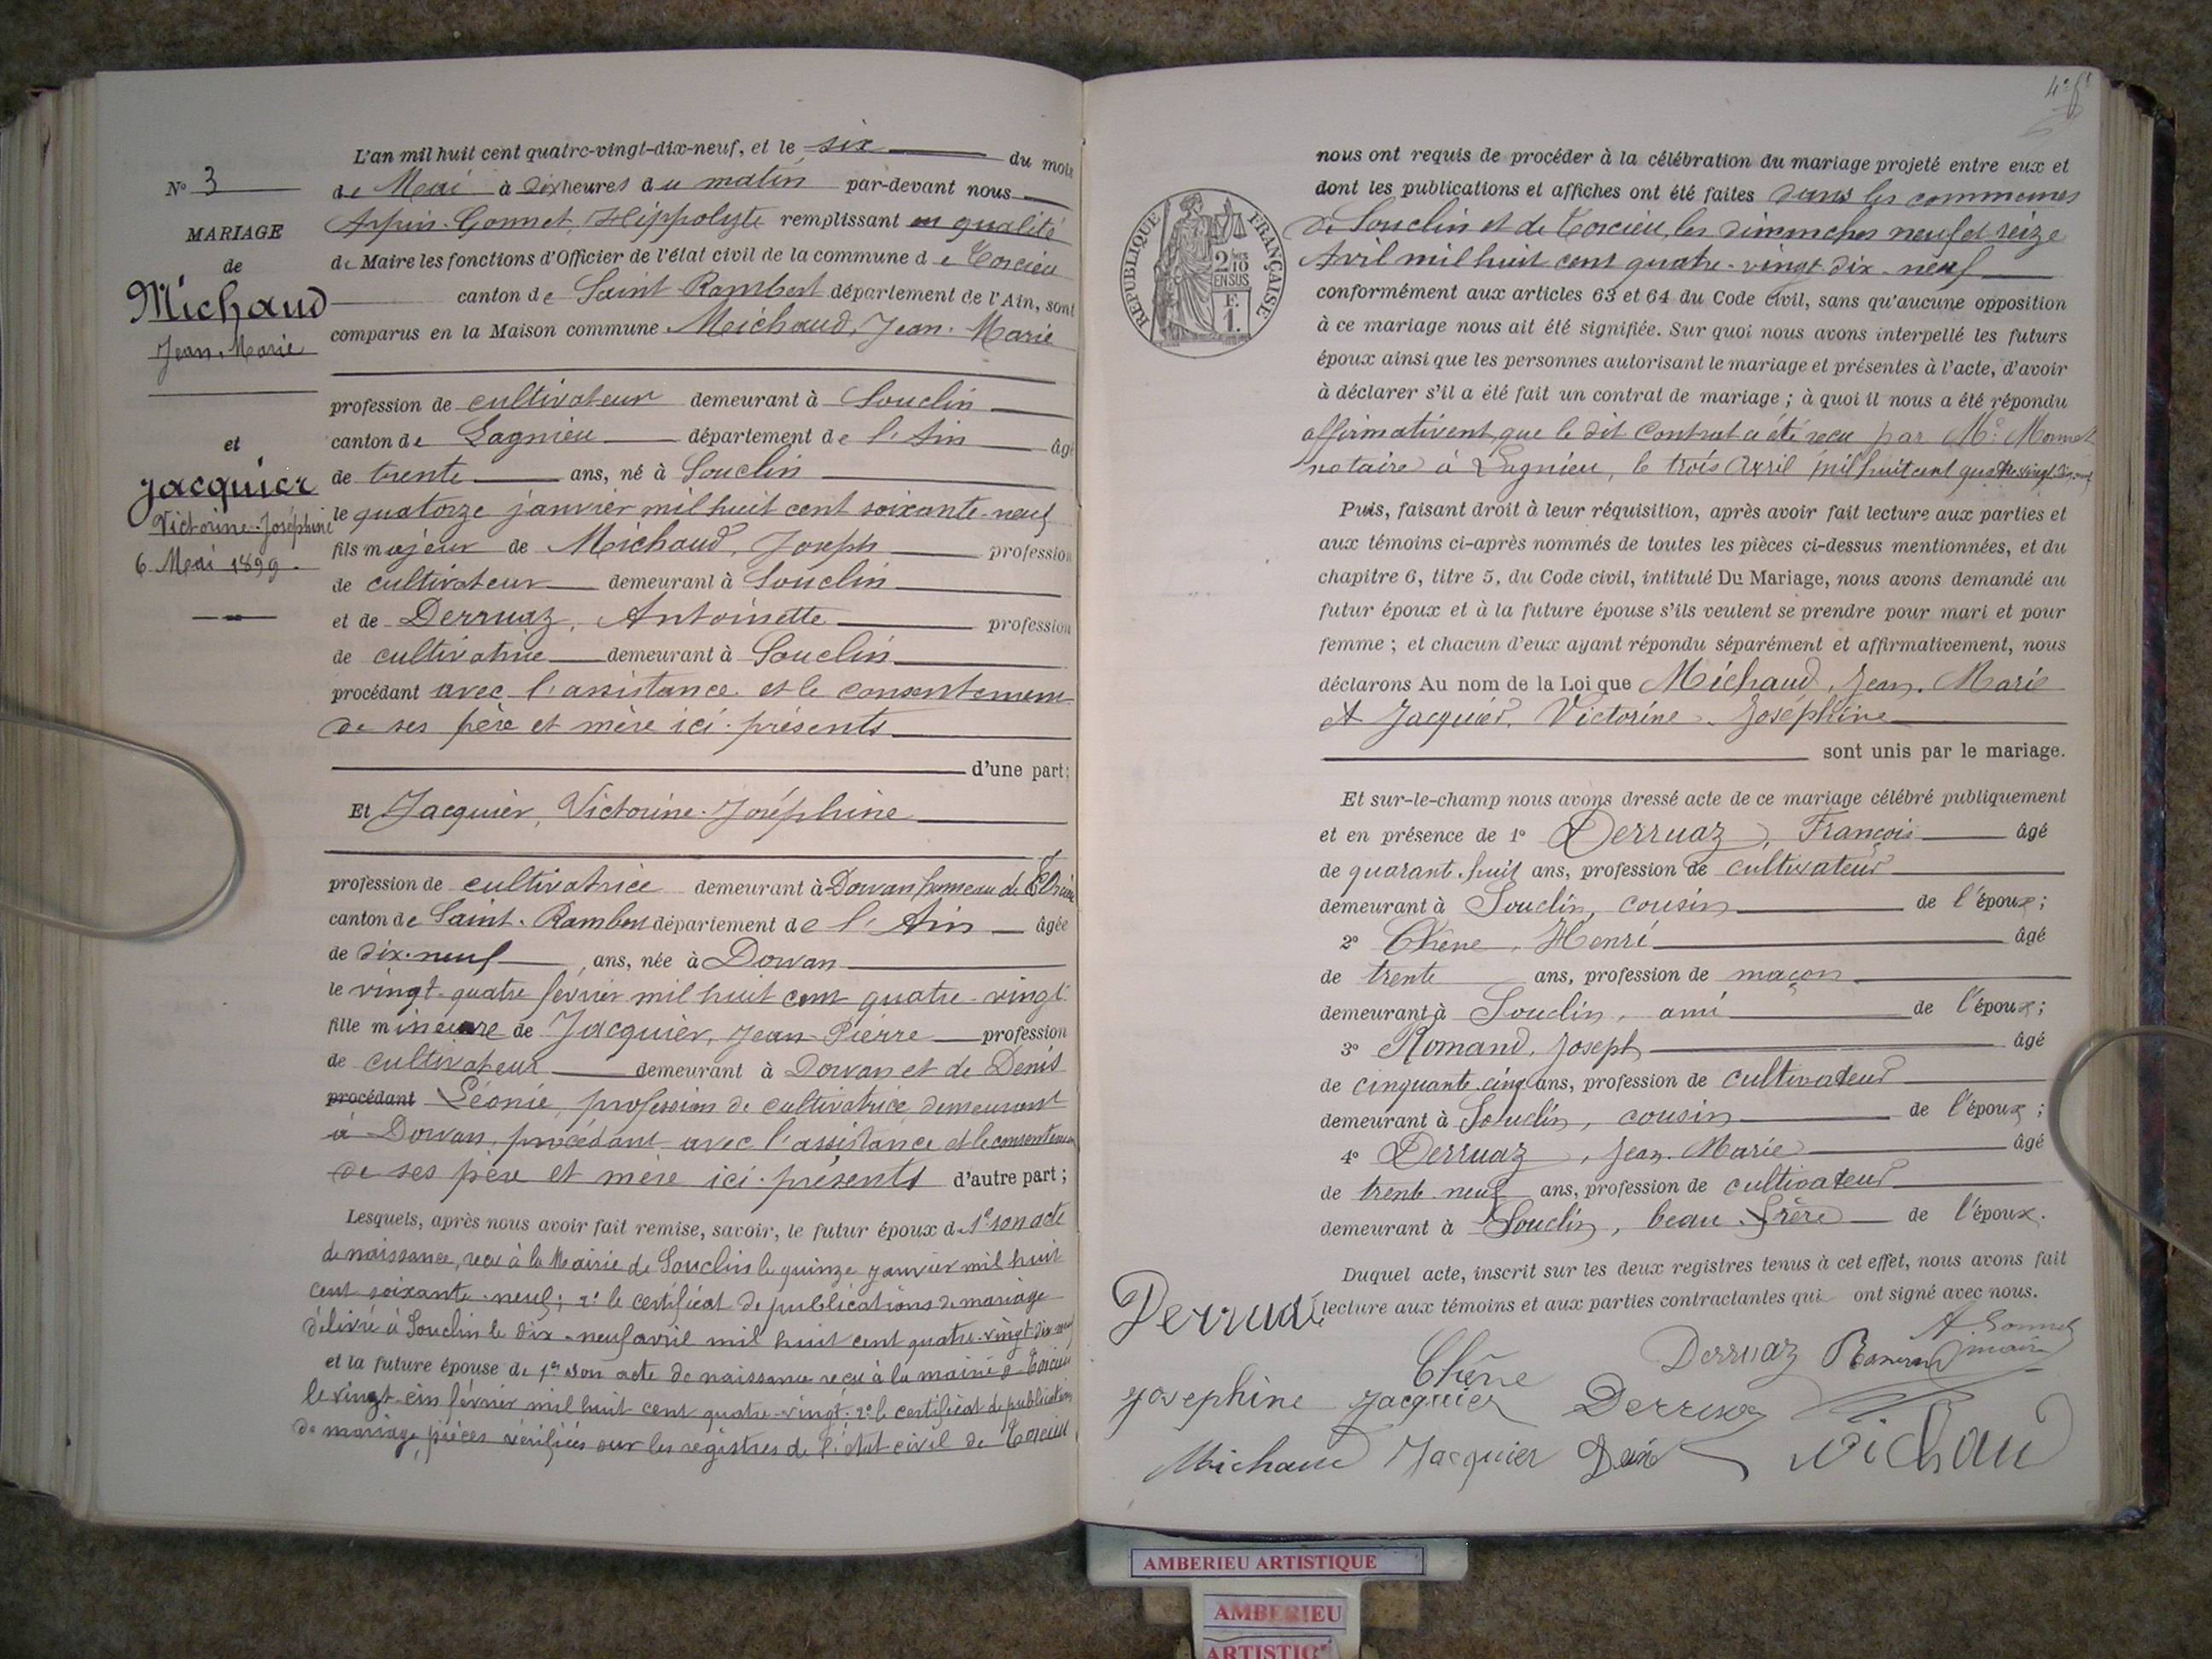 N° 3
MARIAGE
de
Michaud
Jean-Marie
et
Jacquier
Victorine-Joséphine
6 Mai 1899.
L'an mil huit cent quatre-vingt-dix-neuf, et le six du mois
de Mai à dix heures du matin par-devant nous
Arpin-Gonnet, Hippolyte remplissant en qualité
de Maire les fonctions d'Officier de l'état civil de la commune de Torcieu
canton de Saint-Rambert département de l'Ain, sont
comparus en la Maison commune Michaud, Jean-Marie
profession de cultivateur demeurant à Souclin
canton de Lagnieu département de l'Ain âgé
de trente ans, né à Souclin
le quatorze janvier mil huit cent soixante-neuf
fils majeur de Michaud, Joseph profession
de cultivateur demeurant à Souclin
et de Derruaz, Antoinette profession
de cultivatrice demeurant à Souclin
procédant avec l'assistance et le consentement
de ses père et mère ici présents
d'une part;
Et Jacquier, Victorine-Joséphine
profession de cultivatrice demeurant à Dorvan hameau de
canton de Saint-Rambert département de l'Ain âgée
de dix-neuf ans, née à Dorvan
le vingt-quatre février mil huit cent quatre-vingt
fille mineure de Jacquier, Jean-Pierre profession
de cultivateur demeurant à Dorvan et de Denis
procédant Léonie, profession de cultivatrice demeurant
à Dorvan, procédant avec l'assistance et le consentement
de ses père et mère ici présents d'autre part;
Lesquels, après nous avoir fait remise, savoir, le futur époux de 1° son acte
de naissance, reçu à la Mairie de Souclin le quinze janvier mil huit
cent soixante-neuf; 2° le certificat de publications de mariage
délivré à Souclin le dix-neuf avril mil huit cent quatre-vingt-dix-neuf
et la future épouse de 1° son acte de naissance reçu à la mairie de Torcieu
le vingt-cinq février mil huit cent quatre-vingt; 2° le certificat de publications
de mariage, pièces vérifiées sur les registres de l'état civil de Torcieu
4e ft
RÉPUBLIQUE FRANÇAISE
2/10 EN SUS
F. 1.
nous ont requis de procéder à la célébration du mariage projeté entre eux et
dont les publications et affiches ont été faites dans les communes
de Souclin et de Torcieu, les dimanches neuf et seize
Avril mil huit cent quatre-vingt-dix-neuf
conformément aux articles 63 et 64 du Code civil, sans qu'aucune opposition
à ce mariage nous ait été signifiée. Sur quoi nous avons interpellé les futurs
époux ainsi que les personnes autorisant le mariage et présentes à l'acte, d'avoir
à déclarer s'il a été fait un contrat de mariage; à quoi il nous a été répondu
affirmativent, que le dit contrat a été reçu par Me Monnet
notaire à Lagnieu, le trois Avril mil huit cent quatre-vingt-dix-neuf
Puis, faisant droit à leur réquisition, après avoir fait lecture aux parties et
aux témoins ci-après nommés de toutes les pièces ci-dessus mentionnées, et du
chapitre 6, titre 5, du Code civil, intitulé Du Mariage, nous avons demandé au
futur époux et à la future épouse s'ils veulent se prendre pour mari et pour
femme; et chacun d'eux ayant répondu séparément et affirmativement, nous
déclarons Au nom de la Loi que Michaud, Jean-Marie
et Jacquier, Victorine-Joséphine
sont unis par le mariage.
Et sur-le-champ nous avons dressé acte de ce mariage célébré publiquement
et en présence de 1° Derruaz, François âgé
de quarant-huit ans, profession de cultivateur
demeurant à Souclin, cousin de l'époux;
2° Chêne, Henri âgé
de trente ans, profession de maçon
demeurant à Souclin, ami de l'époux;
3° Romand, Joseph âgé
de cinquante-cinq ans, profession de cultivateur
demeurant à Souclin, cousin de l'époux;
4° Derruaz, Jean-Marie âgé
de trente-neuf ans, profession de cultivateur
demeurant à Souclin, beau-frère de l'époux.
Duquel acte, inscrit sur les deux registres tenus à cet effet, nous avons fait
lecture aux témoins et aux parties contractantes qui ont signé avec nous.
A. Gonnet
maire
Derruaz
Chêne
Derruaz
Josephine Jacquier
Derruaz
Michaud Jacquier
Michau
AMBERIEU ARTISTIQUE
AMBERIEU
ARTISTIQ